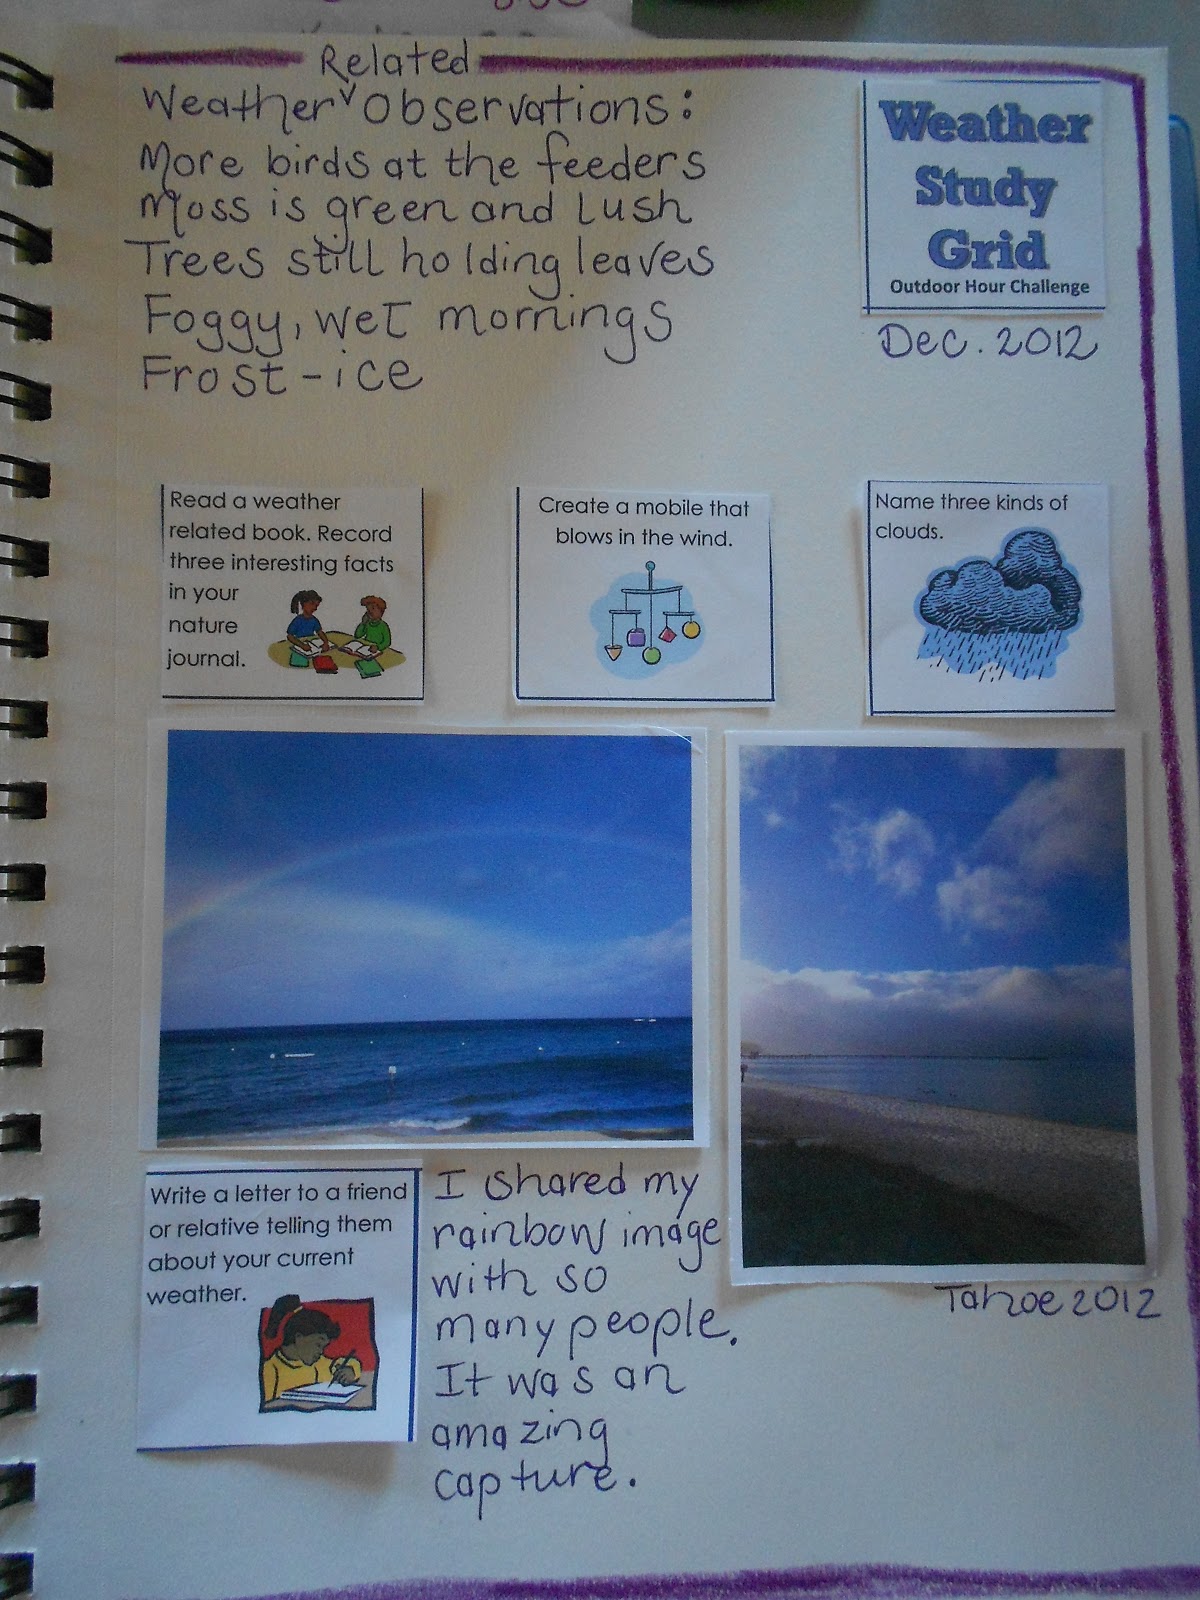 Related
Weather ˅ Observations:
More birds at the feeders
Moss is green and lush
Trees still holding leaves
Foggy, wet mornings
Frost - ice
Weather
Study
Grid
Outdoor Hour Challenge
Dec. 2012
Read a weather
related book. Record
three interesting facts
in your
nature
journal.
Create a mobile that
blows in the wind.
Name three kinds of
clouds.
Write a letter to a friend
or relative telling them
about your current
weather.
I shared my
rainbow image
with so
many people.
It was an
amazing
capture.
Tahoe 2012